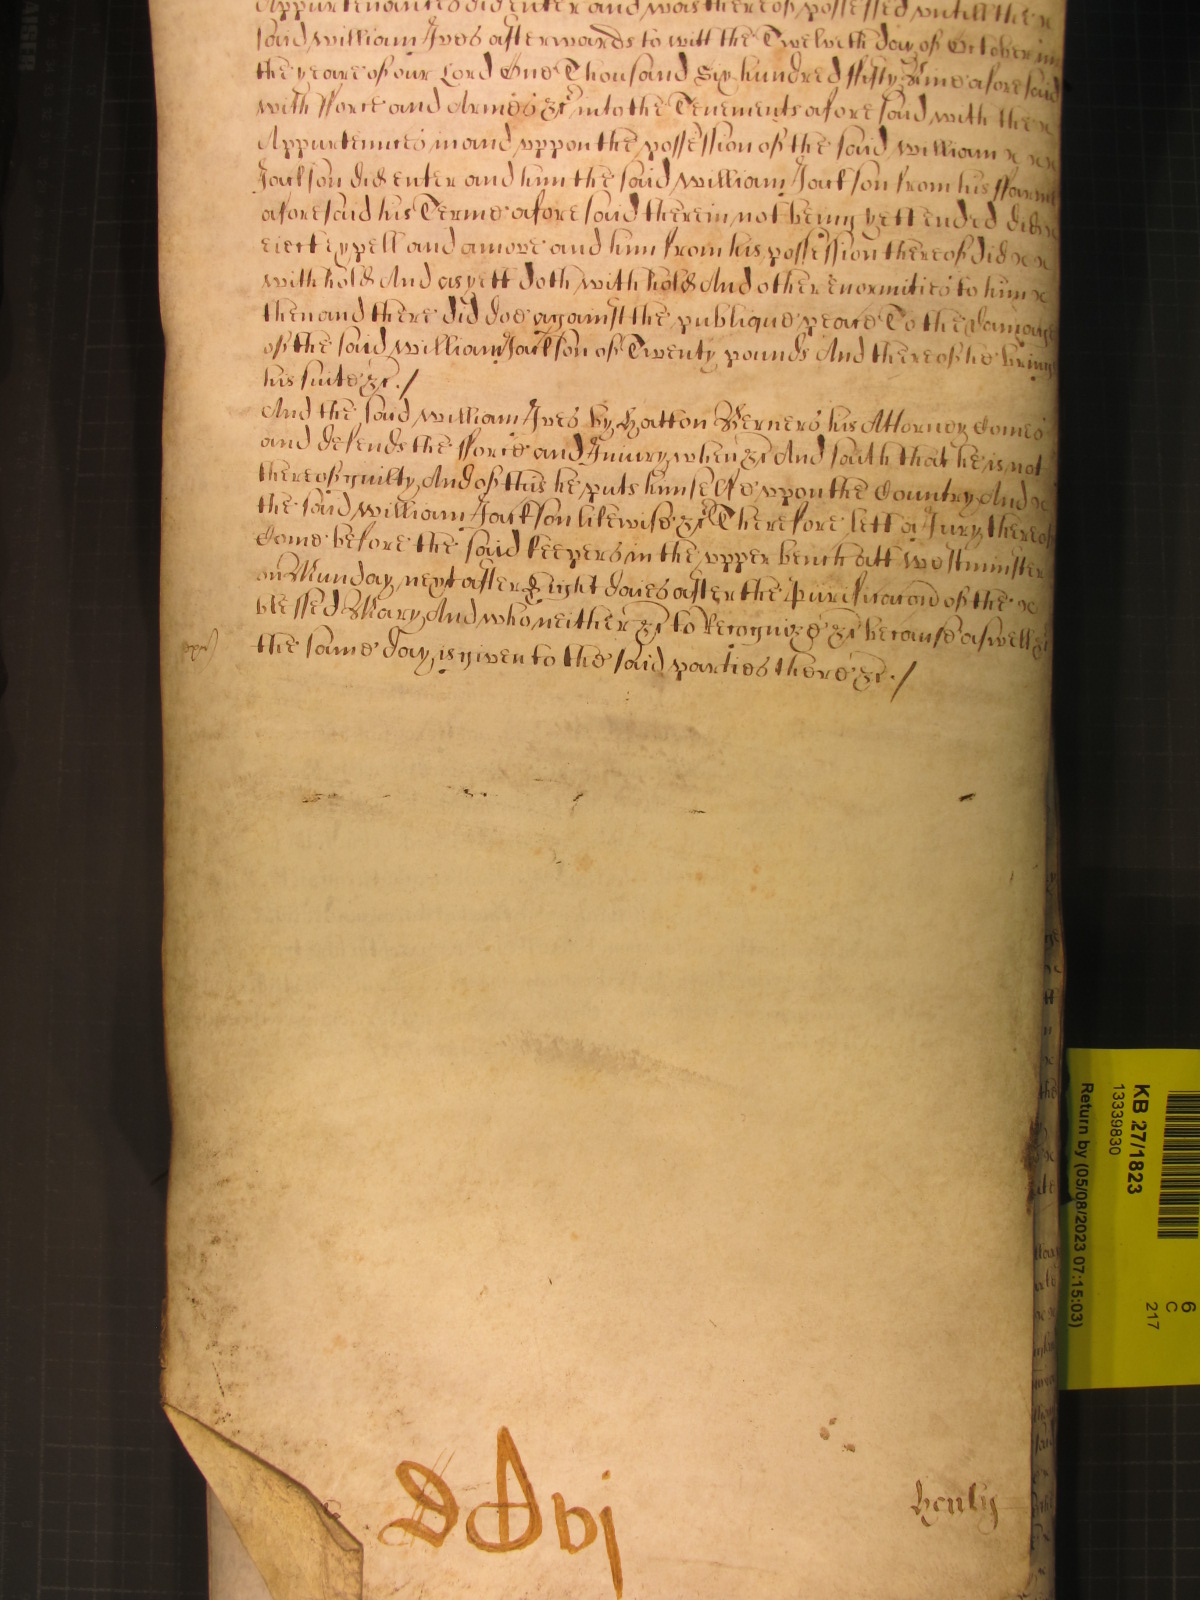 Appurtenances did enter and was thereof possessed vntill the
said William Ives afterwards to witt the Twelveth day of October in
the yeare of our Lord One Thousand Six hundred ffifty Nine aforesaid
with fforce and Armes &c into the Tenements aforesaid with the
Appurtennces in and vppon the possession of the said William
Jackson did enter and him the said William Jackson from his ffarme
aforesaid his Terme aforesaid therein not being yett ended did
eiect expell and amove and him from his possession thereof did
withhold And as yett doth withhold And other enormities to him
then and there did doe against the publique peace To the damage
of the said William Jackson of Twenty pounds And thereof he brings
his suite &c./
And the said William Ives by Hatton Berners his Attorney Comes
and defends the fforce and Iniury when &c And saith that he is not
thereof guilty And of this he puts himselfe vpon the Country And
the said William Jackson likewise &c Therefore lett a Jury thereof
Come before the said keepers in the vpper bench att Westminster
on Munday next after Eight daies after the Purificacon of the
blessed Mary And who neither &c to Recognize &c because aswell &c
the same day is given to the said parties there &c./
Henly
KB 27/1823
13339830
Return by (05/08/2023 07:15:03)
6
C
217